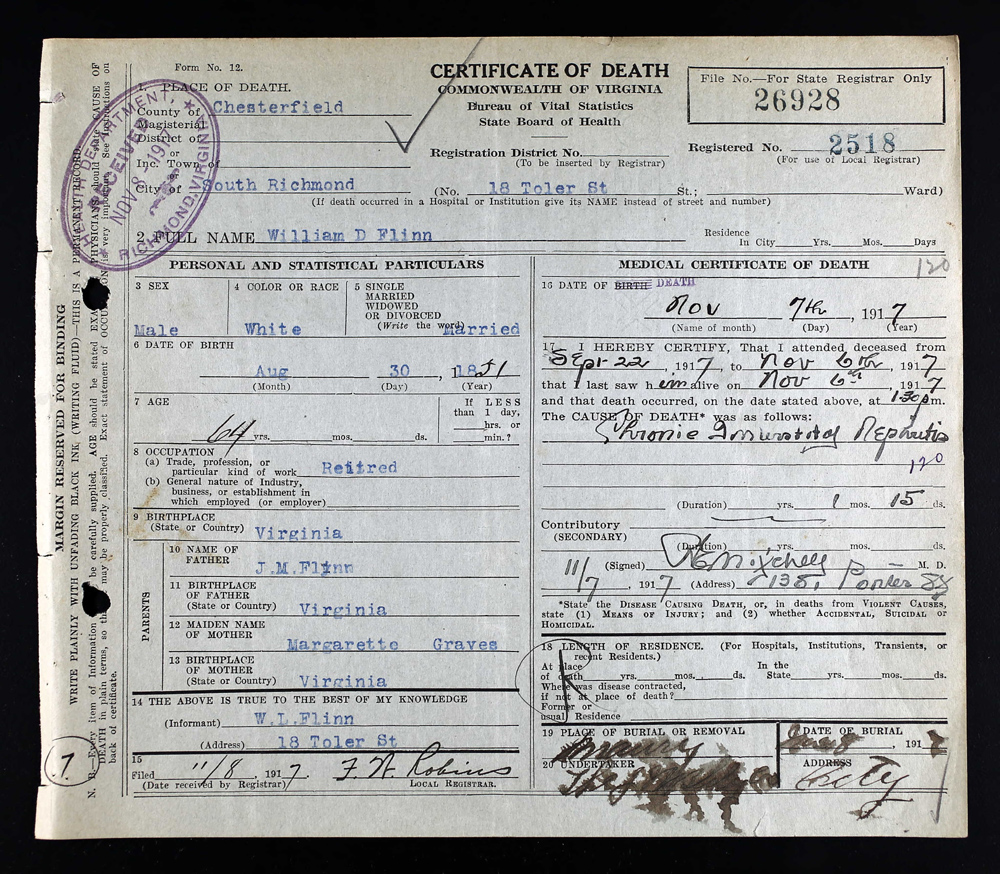 Form No. 12.
1. PLACE OF DEATH.
County of Chesterfield
Magisterial
District of
or
Inc. Town of
City of South Richmond
CERTIFICATE OF DEATH
COMMONWEALTH OF VIRGINIA
Bureau of Vital Statistics
State Board of Health
Registration District No.
(To be inserted by Registrar)
File No.—For State Registrar Only
26928
Registered No. 2518
(For use of Local Registrar)
(No. 18 Toler St St.; Ward)
(If death occurred in a Hospital or Institution give its NAME instead of street and number)
RECEIVED
NOV 8 - 1917
RICHMOND, VIRGINIA
2 FULL NAME William D Flinn
Residence
In City Yrs. Mos. Days
PERSONAL AND STATISTICAL PARTICULARS
3 SEX
Male
4 COLOR OR RACE
White
5 SINGLE
MARRIED
WIDOWED
OR DIVORCED
(Write the word)
Married
6 DATE OF BIRTH
Aug 30, 1851
(Month) (Day) (Year)
7 AGE
64 yrs. mos. ds.
If LESS
than 1 day,
hrs. or
min.?
8 OCCUPATION
(a) Trade, profession, or
particular kind of work Reitred
(b) General nature of Industry,
business, or establishment in
which employed (or employer)
9 BIRTHPLACE
(State or Country) Virginia
PARENTS
10 NAME OF
FATHER
J.M.Flinn
11 BIRTHPLACE
OF FATHER
(State or Country) Virginia
12 MAIDEN NAME
OF MOTHER
Margarette Graves
13 BIRTHPLACE
OF MOTHER
(State or Country) Virginia
14 THE ABOVE IS TRUE TO THE BEST OF MY KNOWLEDGE
(Informant) W.L.Flinn
(Address) 18 Toler St
15
Filed 11/8, 1917. F. W. Robins
(Date received by Registrar) LOCAL REGISTRAR.
MEDICAL CERTIFICATE OF DEATH
120
16 DATE OF BIRTH DEATH
Nov 7th, 1917
(Name of month) (Day) (Year)
17 I HEREBY CERTIFY, That I attended deceased from
Sept-22, 1917, to Nov 6th, 1917
that I last saw him alive on Nov 6th 1917
and that death occurred, on the date stated above, at 1-30 pm.
The CAUSE OF DEATH* was as follows:
Chronic Interstitial Nephritis
120
(Duration) yrs. 1 mos. 15 ds.
Contributory
(SECONDARY)
(Duration) yrs. mos. ds.
(Signed) Mitchell M. D.
11/7, 1917 (Address) 1381 Porter St
*State the DISEASE CAUSING DEATH, or, in deaths from VIOLENT CAUSES,
state (1) MEANS OF INJURY; and (2) whether ACCIDENTAL, SUICIDAL or
HOMICIDAL.
18 LENGTH OF RESIDENCE. (For Hospitals, Institutions, Transients, or
recent Residents.)
At place In the
of death yrs. mos. ds. State yrs. mos. ds.
Where was disease contracted,
if not at place of death?
Former or
usual Residence
19 PLACE OF BURIAL OR REMOVAL
Maury
DATE OF BURIAL
191
20 UNDERTAKER
ADDRESS
City
MARGIN RESERVED FOR BINDING
WRITE PLAINLY WITH UNFADING BLACK INK (WRITING FLUID)—THIS IS A PERMANENT RECORD.
N. B.—Every item of Information be carefully supplied. AGE should be stated PHYSICIANS should state CAUSE OF
DEATH in plain terms, so may be properly classified. Exact statement of is very important. See Instructions on
back of certificate.
7.